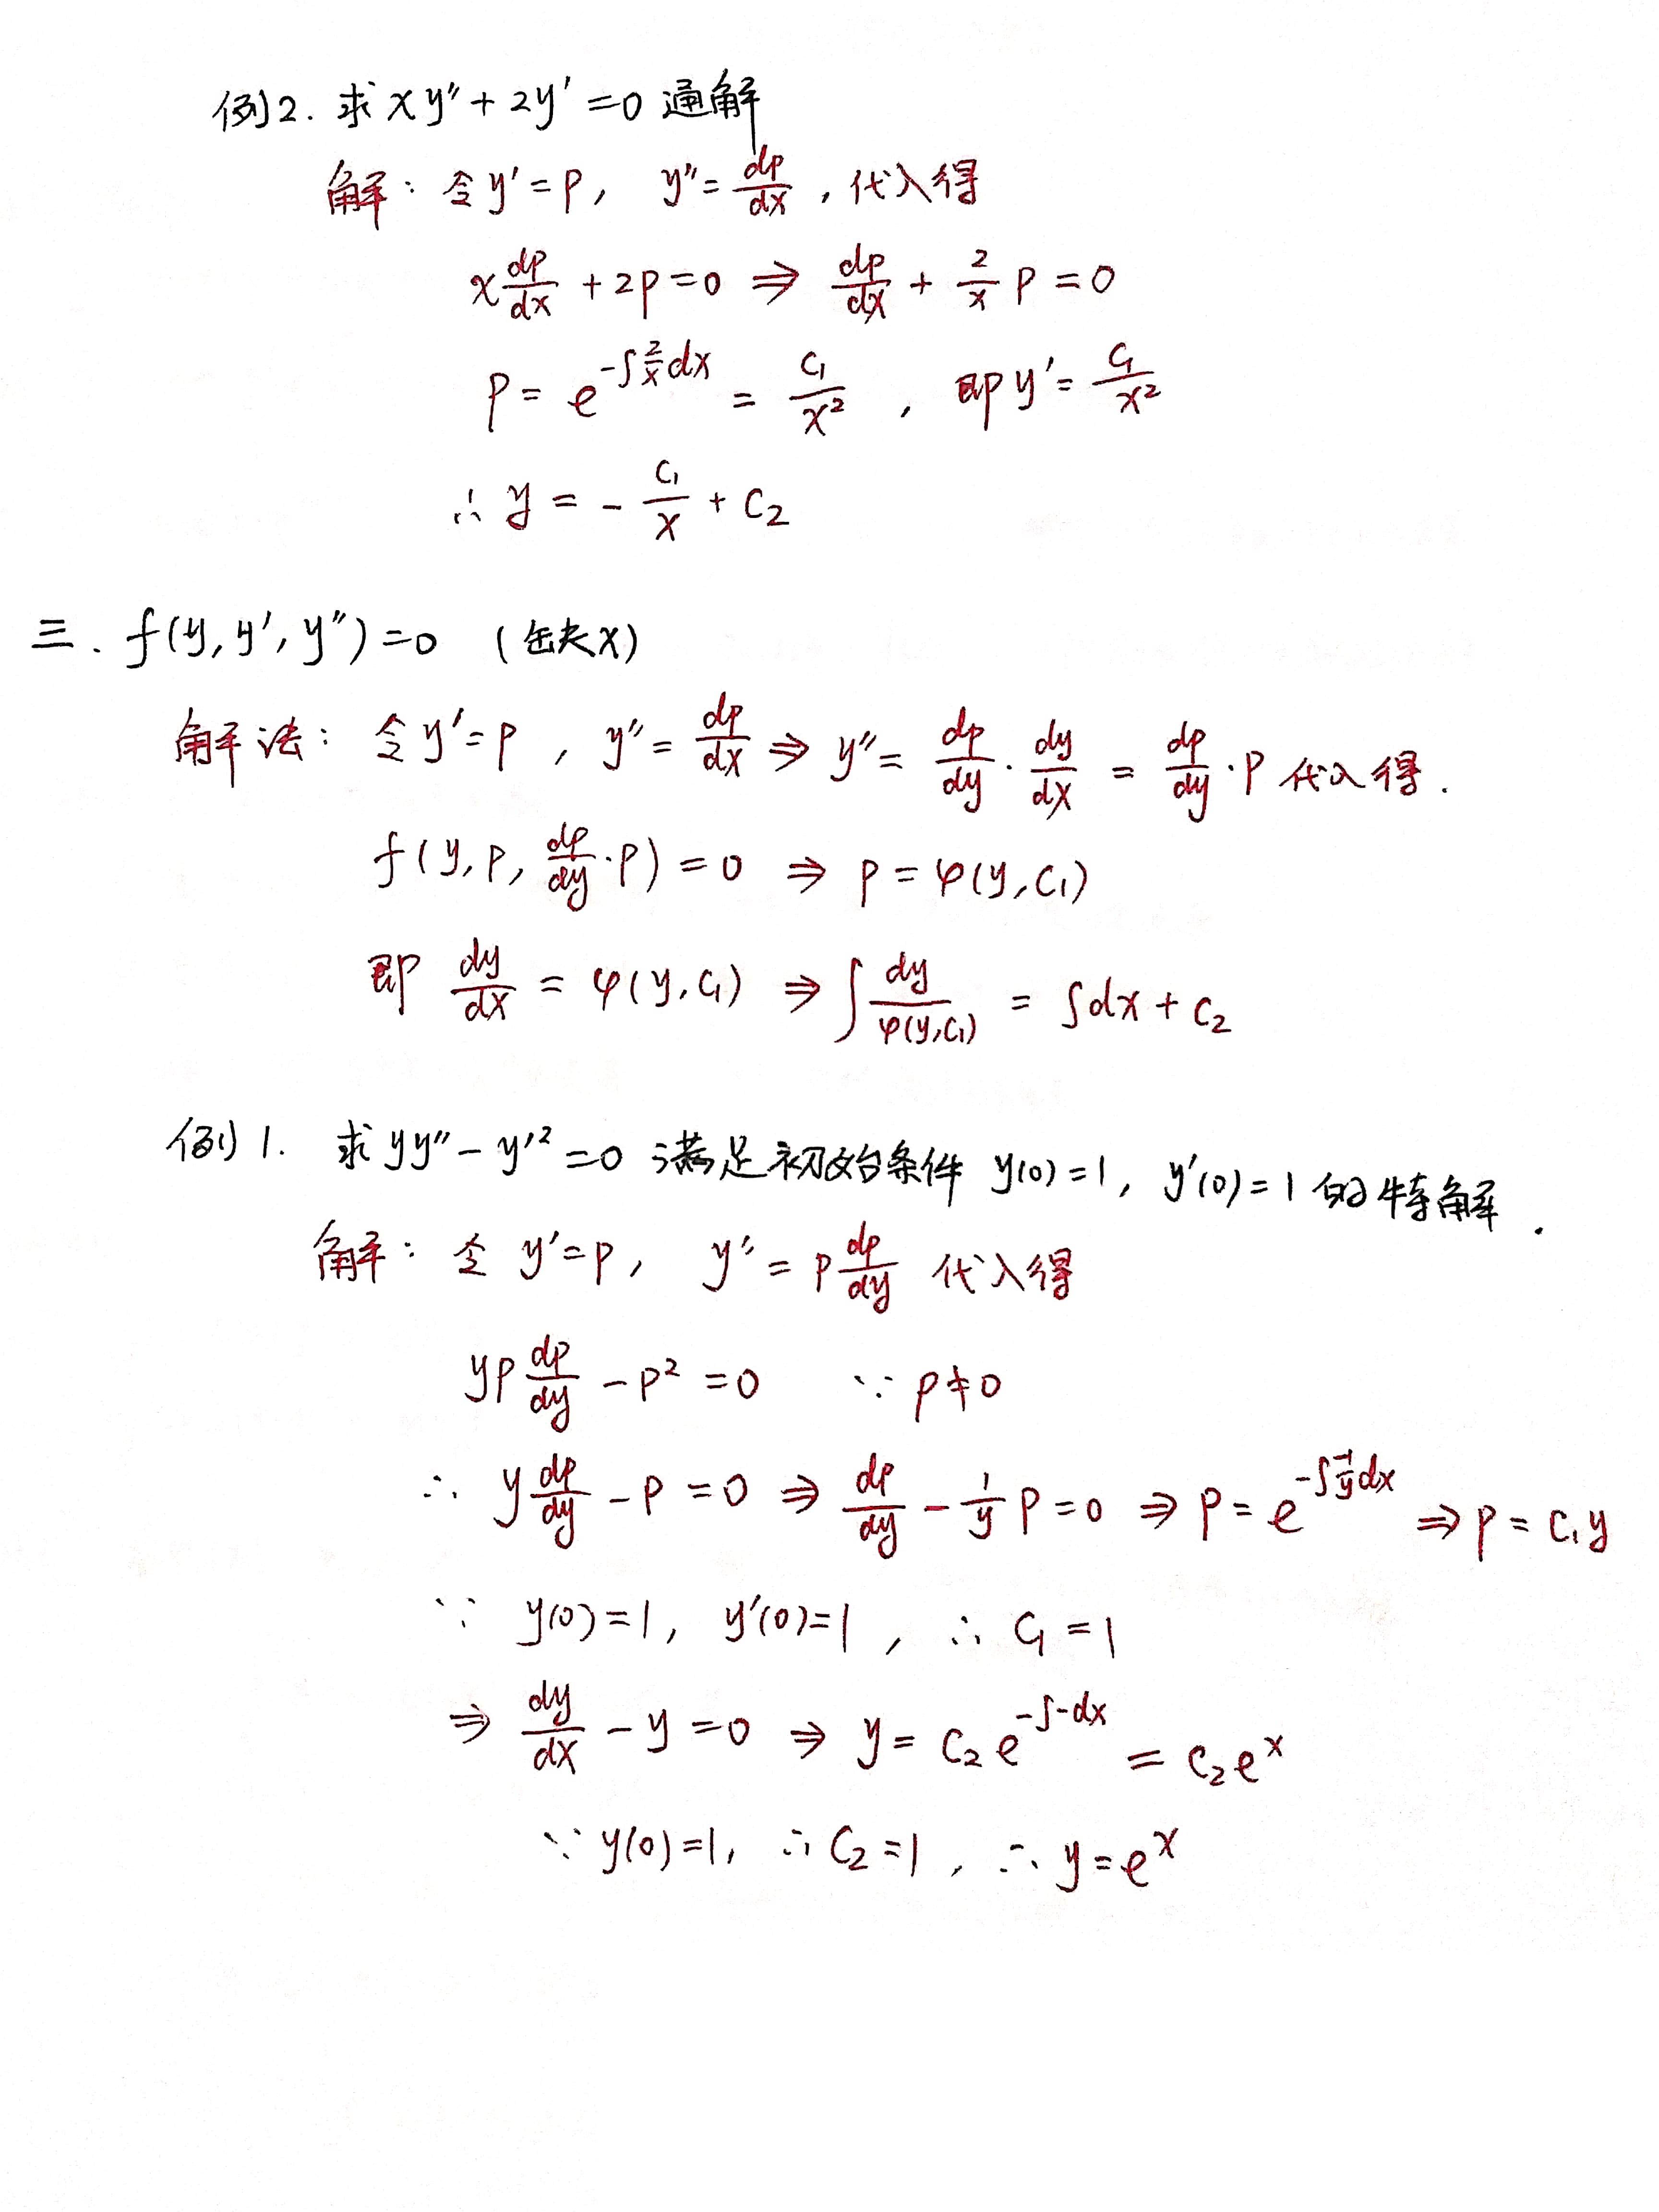 例2. 求 xy″ + 2y′ = 0 通解
解: 令 y′ = p, y″ = dp/dx , 代入得
x dp/dx + 2p = 0 ⇒ dp/dx + 2/x p = 0
p = e^(-∫ 2/x dx) = C₁/x² , 即 y′ = C₁/x²
∴ y = - C₁/x + C₂
三. f(y, y′, y″) = 0 (缶夫x)
解法: 令 y′ = p , y″ = dp/dx ⇒ y″ = dp/dy · dy/dx = dp/dy · p 代入得.
f(y, p, dp/dy · p) = 0 ⇒ p = φ(y, C₁)
即 dy/dx = φ(y, C₁) ⇒ ∫ dy/φ(y,C₁) = ∫dx + C₂
例1. 求 yy″ - y′² = 0 满足初始条件 y(0) = 1, y′(0) = 1 的特解.
解: 令 y′ = p, y″ = p dp/dy 代入得
yp dp/dy - p² = 0 ∵ p ≠ 0
∴ y dp/dy - p = 0 ⇒ dp/dy - 1/y p = 0 ⇒ p = e^(-∫ -1/y dx) ⇒ p = C₁y
∵ y(0) = 1, y′(0) = 1 , ∴ C₁ = 1
⇒ dy/dx - y = 0 ⇒ y = C₂ e^(-∫-dx) = C₂e^x
∵ y(0) = 1, ∴ C₂ = 1 , ∴ y = e^x